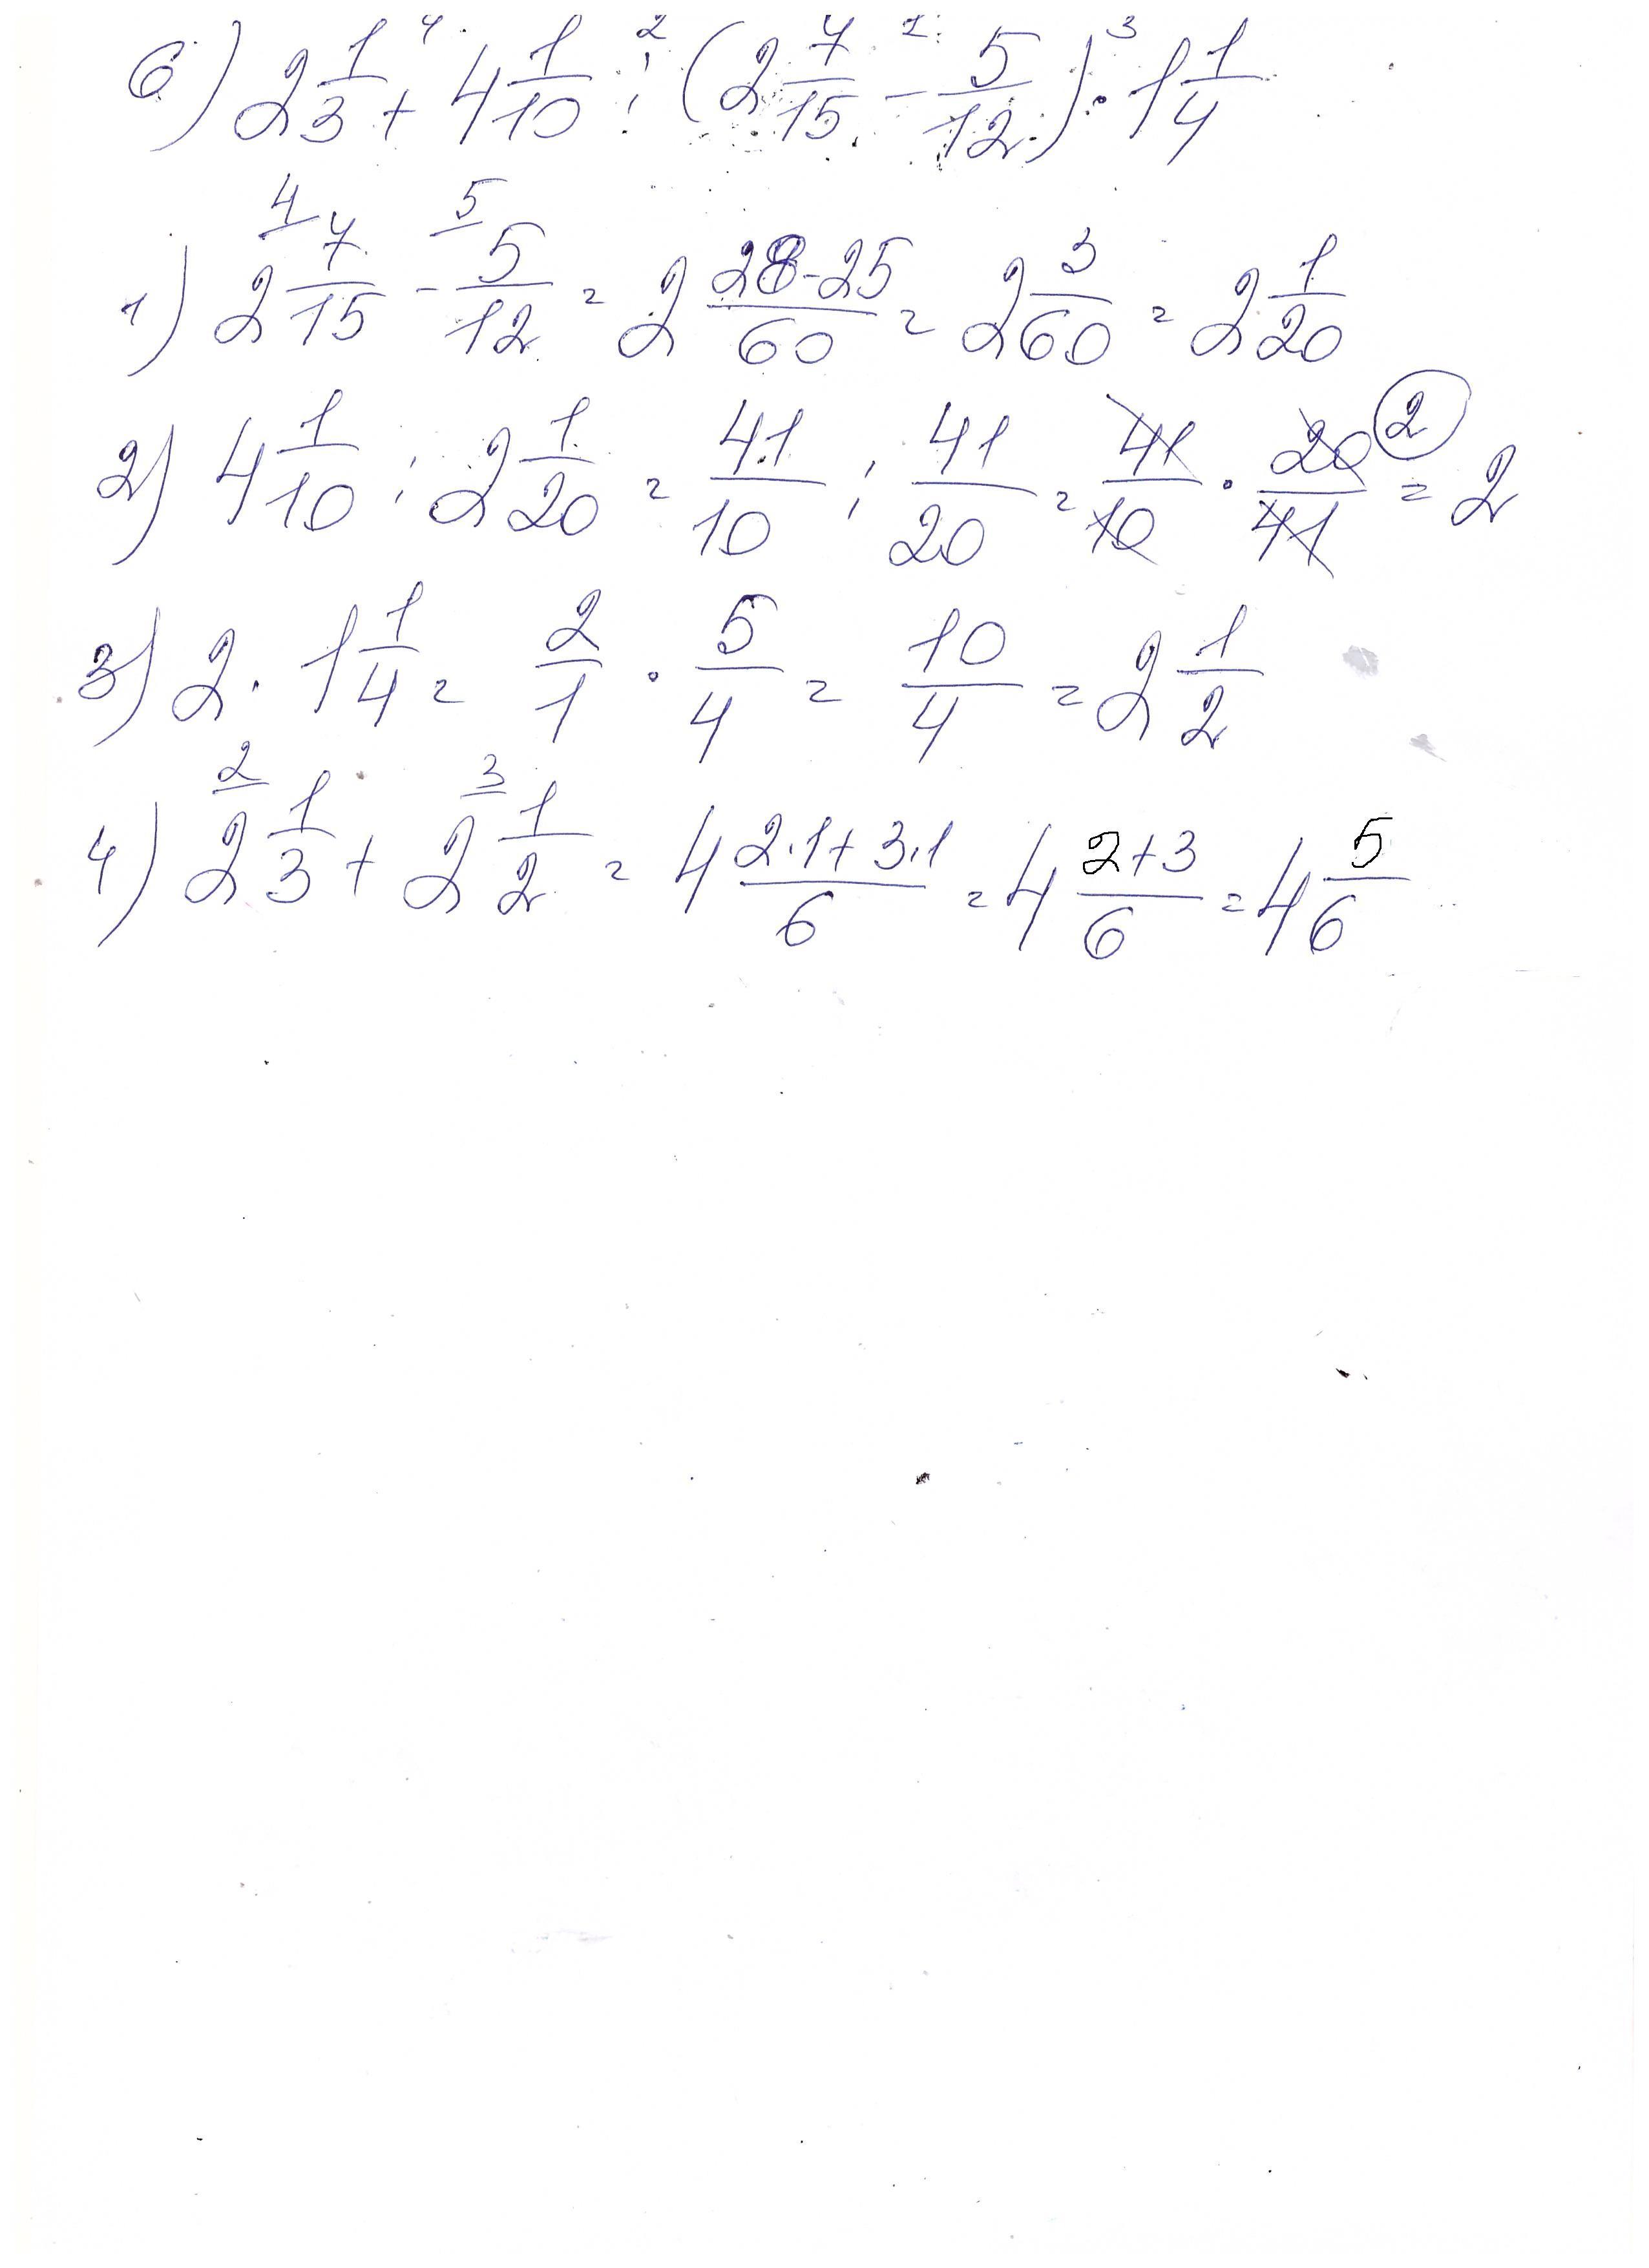 6) 2 1/3 + 4 1/10 : (2 7/15 - 5/12) · 1 1/4
1) 2 7/15 - 5/12 = 2 28-25/60 = 2 3/60 = 2 1/20
2) 4 1/10 : 2 1/20 = 41/10 : 41/20 = 41/10 · 20/41 2 = 2
3) 2 · 1 1/4 = 2/1 · 5/4 = 10/4 = 2 1/2
4) 2 1/3 + 2 1/2 = 4 2·1+3·1/6 = 4 2+3/6 = 4 5/6